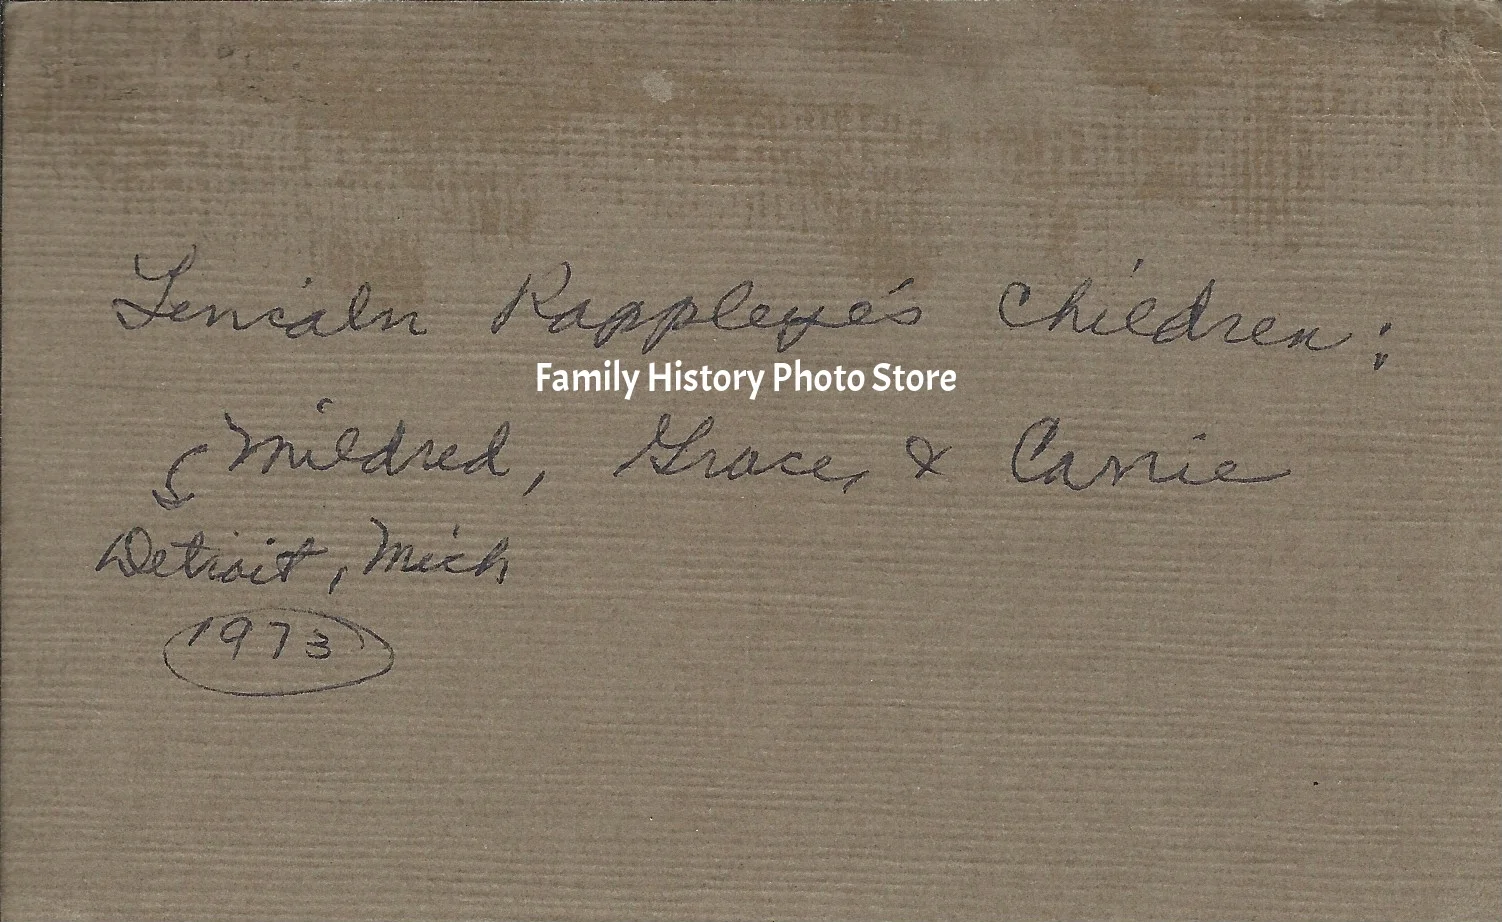 Lincoln Rappleye's Children:
Family History Photo Store
Mildred, Grace, & Carrie
Detroit, Mich
1973